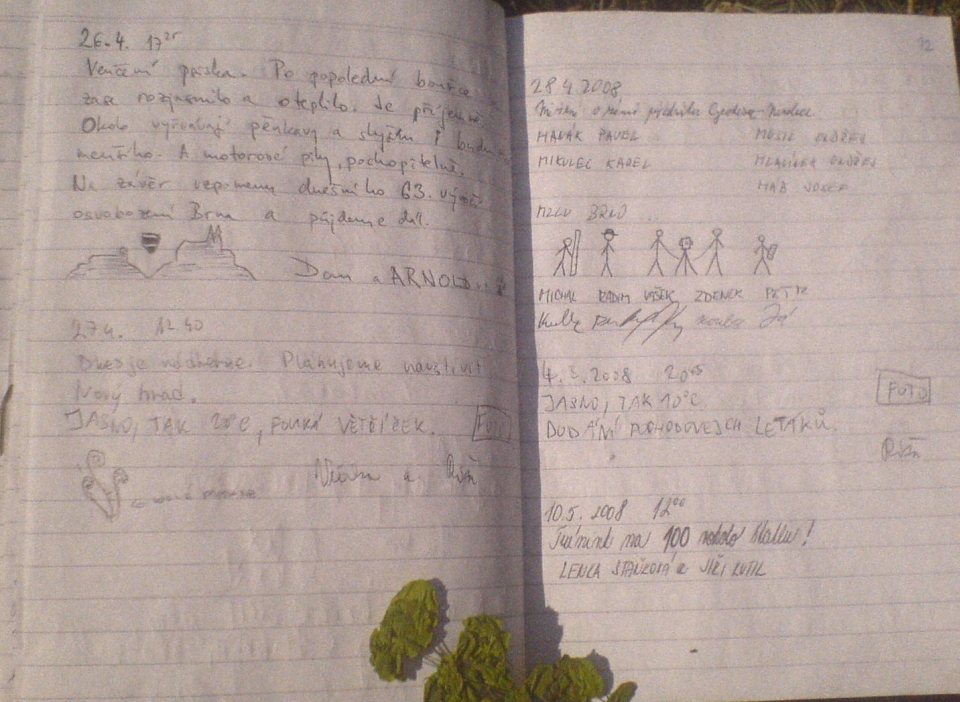 26.4. 17 25
Venčení psiska. Po popolední bouřce
zase rozjasnilo a oteplilo. Je příjemně.
Okolo vyřvávají pěnkavy a slyším i budníčka
menšího. A motorové pily, pochopitelně.
Na závěr vzpomenu dnešního 63. výročí
osvobození Brna a půjdeme dál.
Dan a ARNOLD
27.4. 12.40
Dnes je nádherně. Plánujeme navštívit
Nový hrad.
JASNO, TAK 20°C, FOUKÁ VĚTŘÍČEK.
FOTO
a
12
28.4.2008
HANÁK PAVEL
MUSIL ONDŘEJ
MIKULEC KAREL
ONDŘEJ
JOSEF
MZLU BRNO ...
MICHAL RADIM VAŠEK ZDENEK PETR
4.5.2008 20
JASNO, TAK 10°C
FOTO
DODÁNÍ POHODOVEJCH LETÁKŮ.
10.5.2008 12 00
Trénink na 100 !
LENKA a JIŘÍ KUTIL